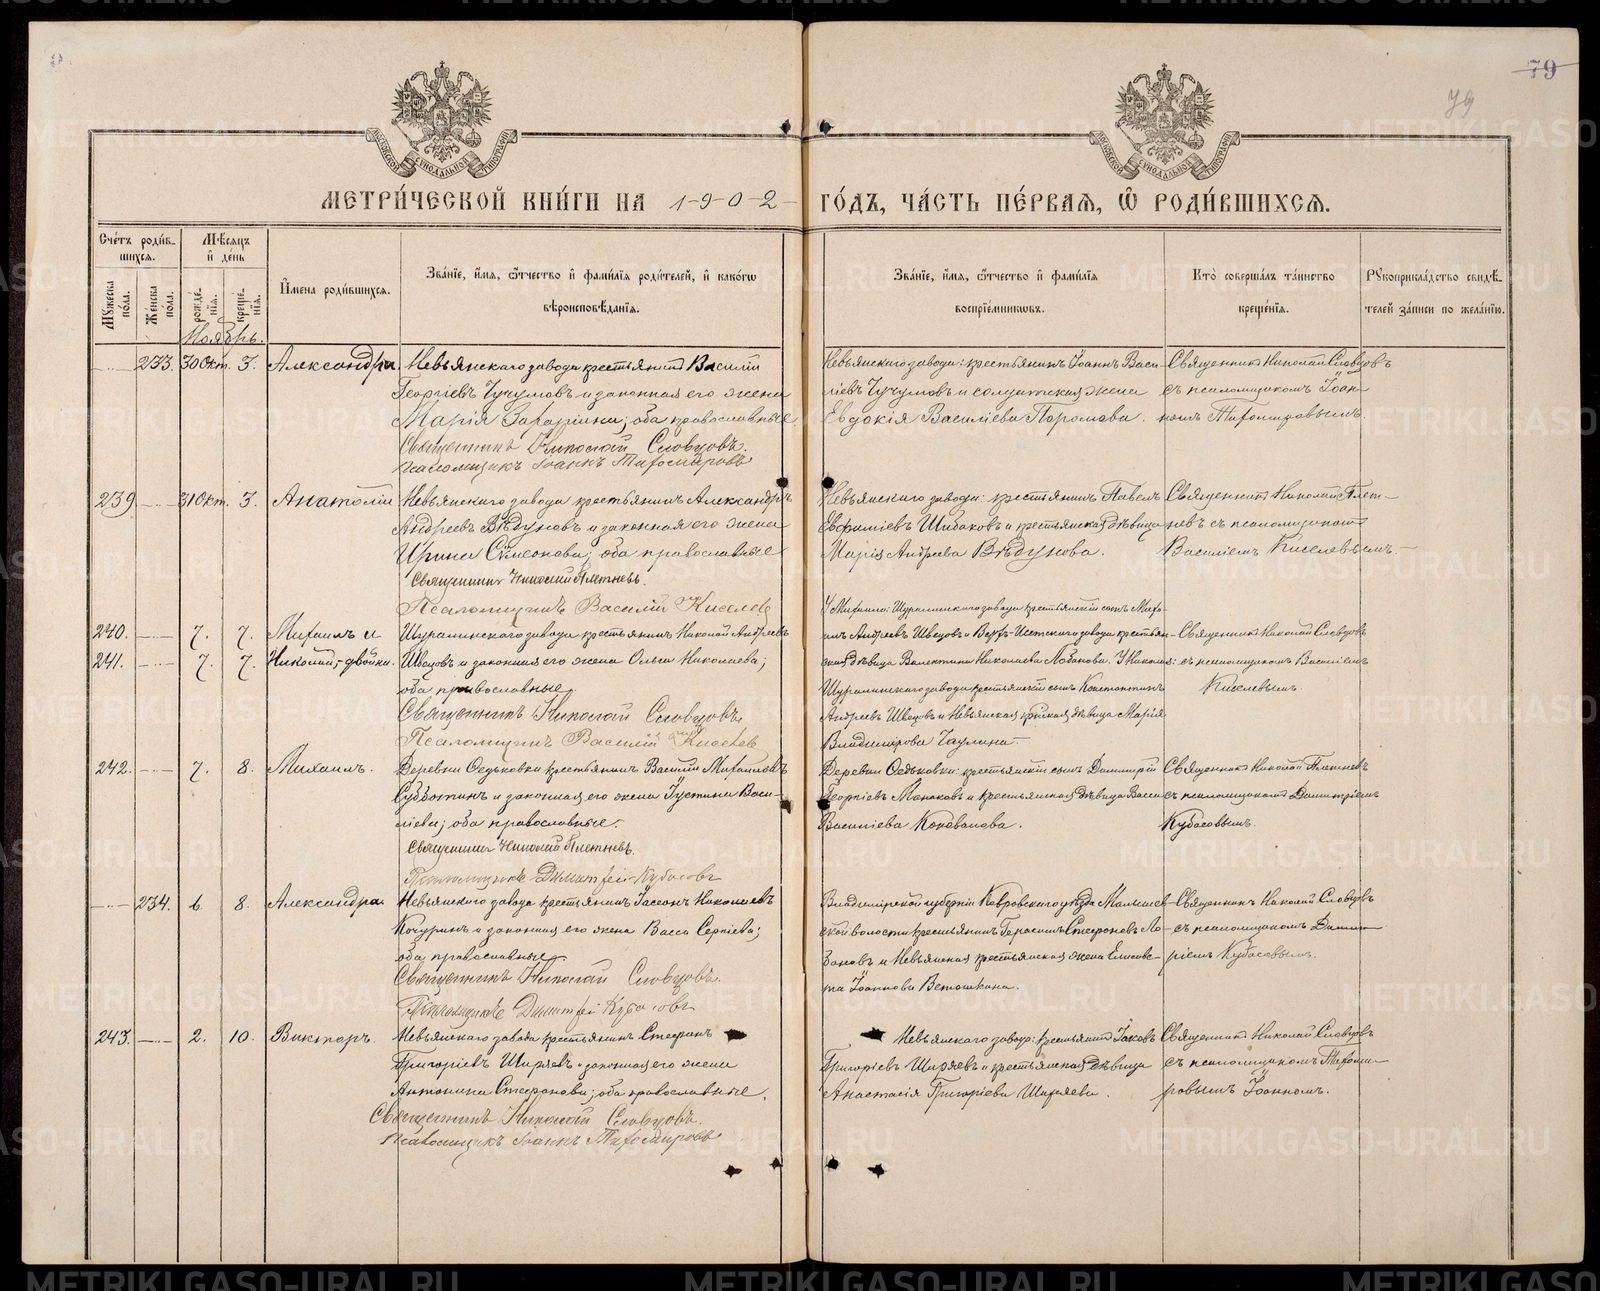 79
79
МОСКОВСКОЙ СѴНОДАЛЬНОЙ ТИПОГРАФІИ
МОСКОВСКОЙ СѴНОДАЛЬНОЙ ТИПОГРАФІИ
МЕТРИ́ЧЕСКОЙ КНИ́ГИ НА 1902 ГО́ДЪ, ЧА́СТЬ ПЕ́РВАЯ, Ѡ҆ РОДИ́ВШИХСЯ.
Сче́тъ роди́в-
шихся.
Мужеска по́ла.
Же́нска по́ла.
Мѣ́сяцъ
и҆ день
рожде́нія.
креще́нія.
И҆мена роди́вшихся.
Зва́ніе, и҆́мя, ѻ҆́тчество и҆ фами́лія роди́телей, и҆ како́гѡ
вѣроисповѣ́данія.
Зва́ніе, и҆́мя, ѻ҆́тчество и҆ фами́лія
воспріе́мниковъ.
Кто̀ соверша́лъ та́инство
креще́нія.
Рукоприкла́дство свидѣ́-
телей за́писи по жела́нію.
Ноябрь.
233. 30 Окт. 3. Александра.
Невьянскаго завода крестьянинъ Василій
Георгіевъ Чучумовъ и законная его жена
Марія Захаріина; оба православные
Священникъ Николай Словцовъ.
Псаломщикъ Іоаннъ Тихомировъ
Невьянскаго завода: крестьянинъ Іоаннъ Васи-
ліевъ Чучумовъ и солдатская жена
Евдокія Василіева Поромова.
Священникъ Николай Словцовъ
съ псаломщикомъ Іоан-
номъ Тихомировымъ.
239. 31 Окт. 3. Анатолій
Невьянскаго завода крестьянинъ Александръ
Андреевъ Вѣдуновъ и законная его жена
Ирина Симеонова; оба православные
Священникъ Николай Плетневъ.
Псаломщикъ Василій Киселев
Невьянскаго завода: крестьянинъ Павелъ
Евфиміевъ Шибаковъ и крестьянская дѣвица
Марія Андреева Вѣдунова.
Священникъ Николай Плет-
невъ съ псаломщикомъ
Василіемъ Киселевымъ.
240. 7. 7. Михаилъ и
241. 7. 7. Николай, - двойни.
Шуралинскаго завода крестьянинъ Николай Андреевъ
Швецовъ и законная его жена Ольга Николаева;
оба православные.
Священникъ Николай Словцовъ
Псаломщикъ Василій Киселев
У Михаила: Шуралинскаго завода крестьянскій сынъ Миха-
илъ Андреевъ Швецовъ и Верхъ-Исетскаго завода крестьян-
ская дѣвица Валентина Николаева Лобанова. У Николая:
Шуралинскаго завода крестьянскій сынъ Константинъ
Андреевъ Швецовъ и Невьянская дѣвица Марія
Владимірова Чаулина.
Священникъ Николай Словцовъ
съ псаломщикомъ Василіемъ
Киселевымъ.
242. 7. 8. Михаилъ.
Деревни Ѳедьковки крестьянинъ Василій Михайловъ
Субботинъ и законная его жена Іустина Васи-
ліева; оба православные.
Священникъ Николай Плетневъ.
Псаломщикъ Димитрій Кубасовъ
Деревни Ѳедьковки: крестьянскій сынъ Димитрій
Георгіевъ Манаковъ и крестьянская дѣвица Васса
Василіева Коновалова.
Священникъ Николай Плетневъ
съ псаломщикомъ Димитріемъ
Кубасовымъ.
234. 6. 8. Александра.
Невьянскаго завода крестьянинъ Іассонъ Николаевъ
Кочуринъ и законная его жена Васса Сергіева;
оба православные.
Священникъ Николай Словцовъ.
Псаломщикъ Димитрій Кубасовъ
Владимірской губерніи Ковровскаго уѣзда Малышев-
ской волости крестьянинъ Герасимъ Стефановъ Ло-
бановъ и Невьянская крестьянская жена Елисаве-
та Іоаннова Ветошкина.
Священникъ Николай Словцовъ
съ псаломщикомъ Димит-
ріемъ Кубасовымъ.
243. 2. 10. Викторъ.
Невьянскаго завода крестьянинъ Стефанъ
Григоріевъ Ширяевъ и законная его жена
Антонина Стефанова; оба православные.
Священникъ Николай Словцовъ.
Псаломщикъ Іоаннъ Тихомировъ
Невьянскаго завода: крестьянинъ Іаковъ
Григоріевъ Ширяевъ и крестьянская дѣвица
Анастасія Григоріева Ширяева.
Священникъ Николай Словцовъ
съ псаломщикомъ Тихоми-
ровымъ Іоанномъ.
METRIKI.GASO-URAL.RU